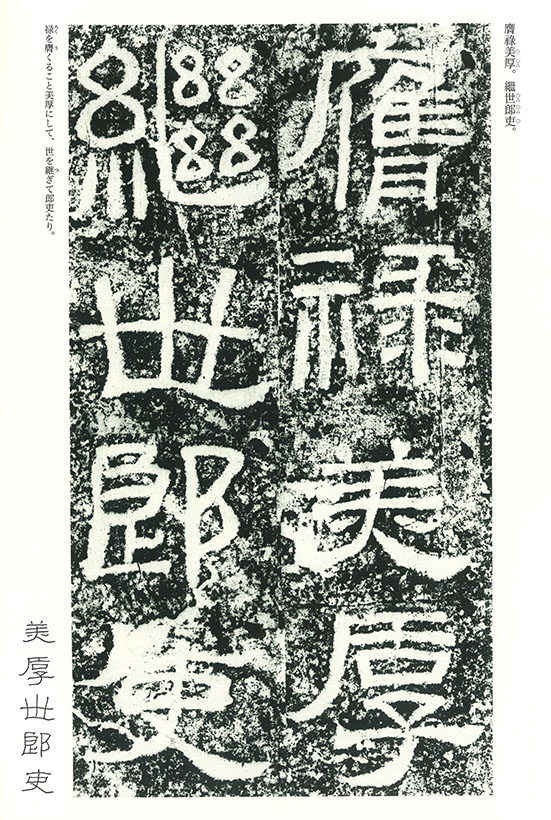 膺祿美厚。繼世郎吏。
膺祿美厚
繼世郎吏
禄を膺くること美厚にして、世を継ぎて郎吏たり。
美厚世郎吏